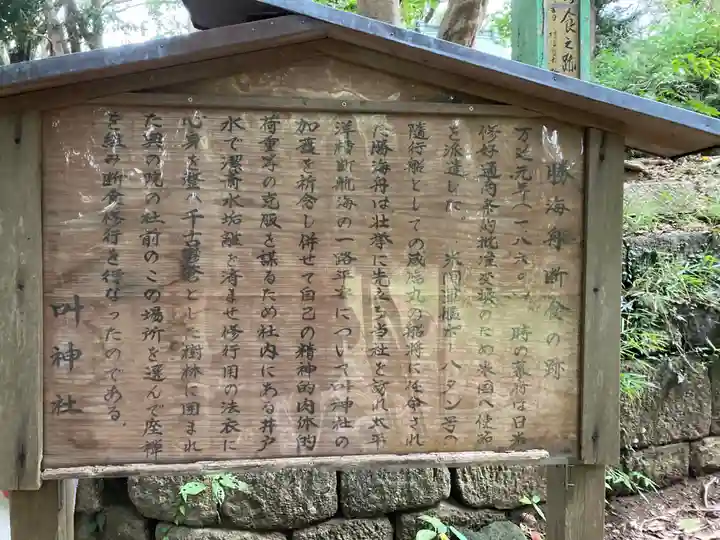 食之跡
勝海舟断食の跡
万延元年(一八六〇) 時の幕府は日米
修好通商条約批准交換のため米国へ使節
を派遣した 米国軍艦ポーハタン号へ
随行船としての咸臨丸の艦将に任命され
た勝海舟は壮挙に先立ち当社を訪れ太平
洋横断航海の一路平安について叶神社の
加護を祈念し併せて自己の精神的肉体的
荷重等の克服を謀るため社内にある井戸
水で潔斎水垢離を済ませ修行用の法衣に
心身を整へ千古 とした樹林に囲まれ
た奥の院の社前のこの場所を選んで座禅
を組み断食修行を行なったのである。
叶神社